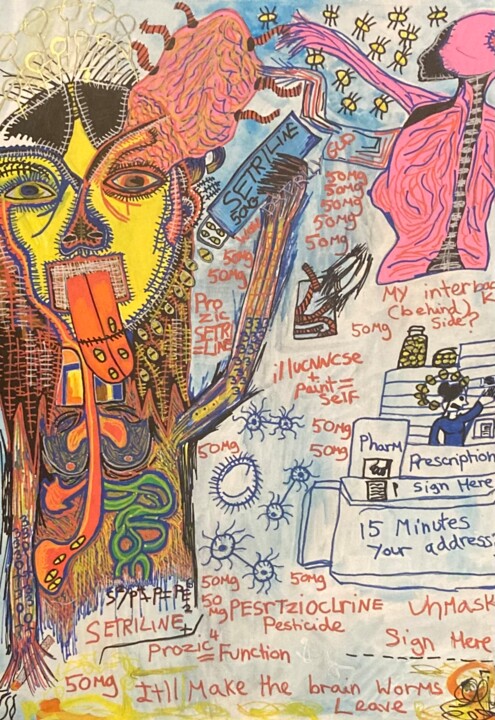 SETRILINE
50MG
GUP
50MG
50MG
50MG
50MG
50MG
50MG
50MG
Pro
zic
SETR
ILINE
My interbac
(behind) k
Side?
50MG
illucNNCse
+
Paint =
Self
50MG
50MG
50MG
Pharm
Prescription
Sign Here
15 Minutes
Your address?
50MG
50MG
50
MG
PESRTZIOCLRINE
Pesticide
UnMask
SETRILINE +
Prozic = Function
4
Sign Here
50MG
It'll Make the brain Worms
Leave